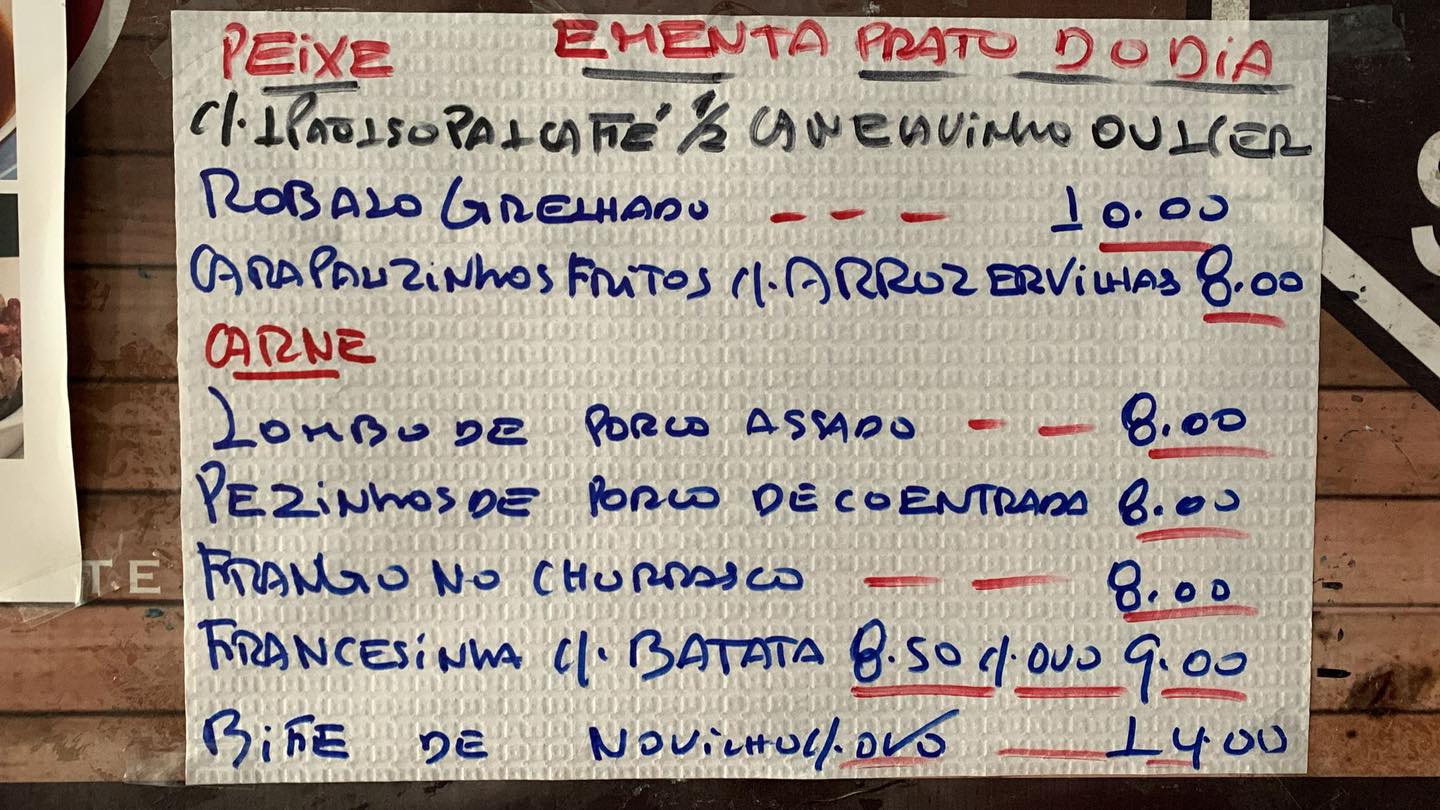 PEIXE EMENTA PRATO DO DIA
C/. 1 PÃO 1 SOPA 1 CAFFÉ 1/2 CANECA VINHO OU 1 CER
ROBALO GRELHADO --- 10.00
CARAPAUZINHOS FRITOS C/. ARROZ ERVILHAS 8.00
CARNE
LOMBO DE PORCO ASSADO -- 8.00
PEZINHOS DE PORCO DE COENTRADA 8.00
FRANGO NO CHURRASCO -- 8.00
FRANCESINHA C/. BATATA 8.50 C/. OVO 9.00
BIFE DE NOVILHO C/. OVO - 14.00
TE
S